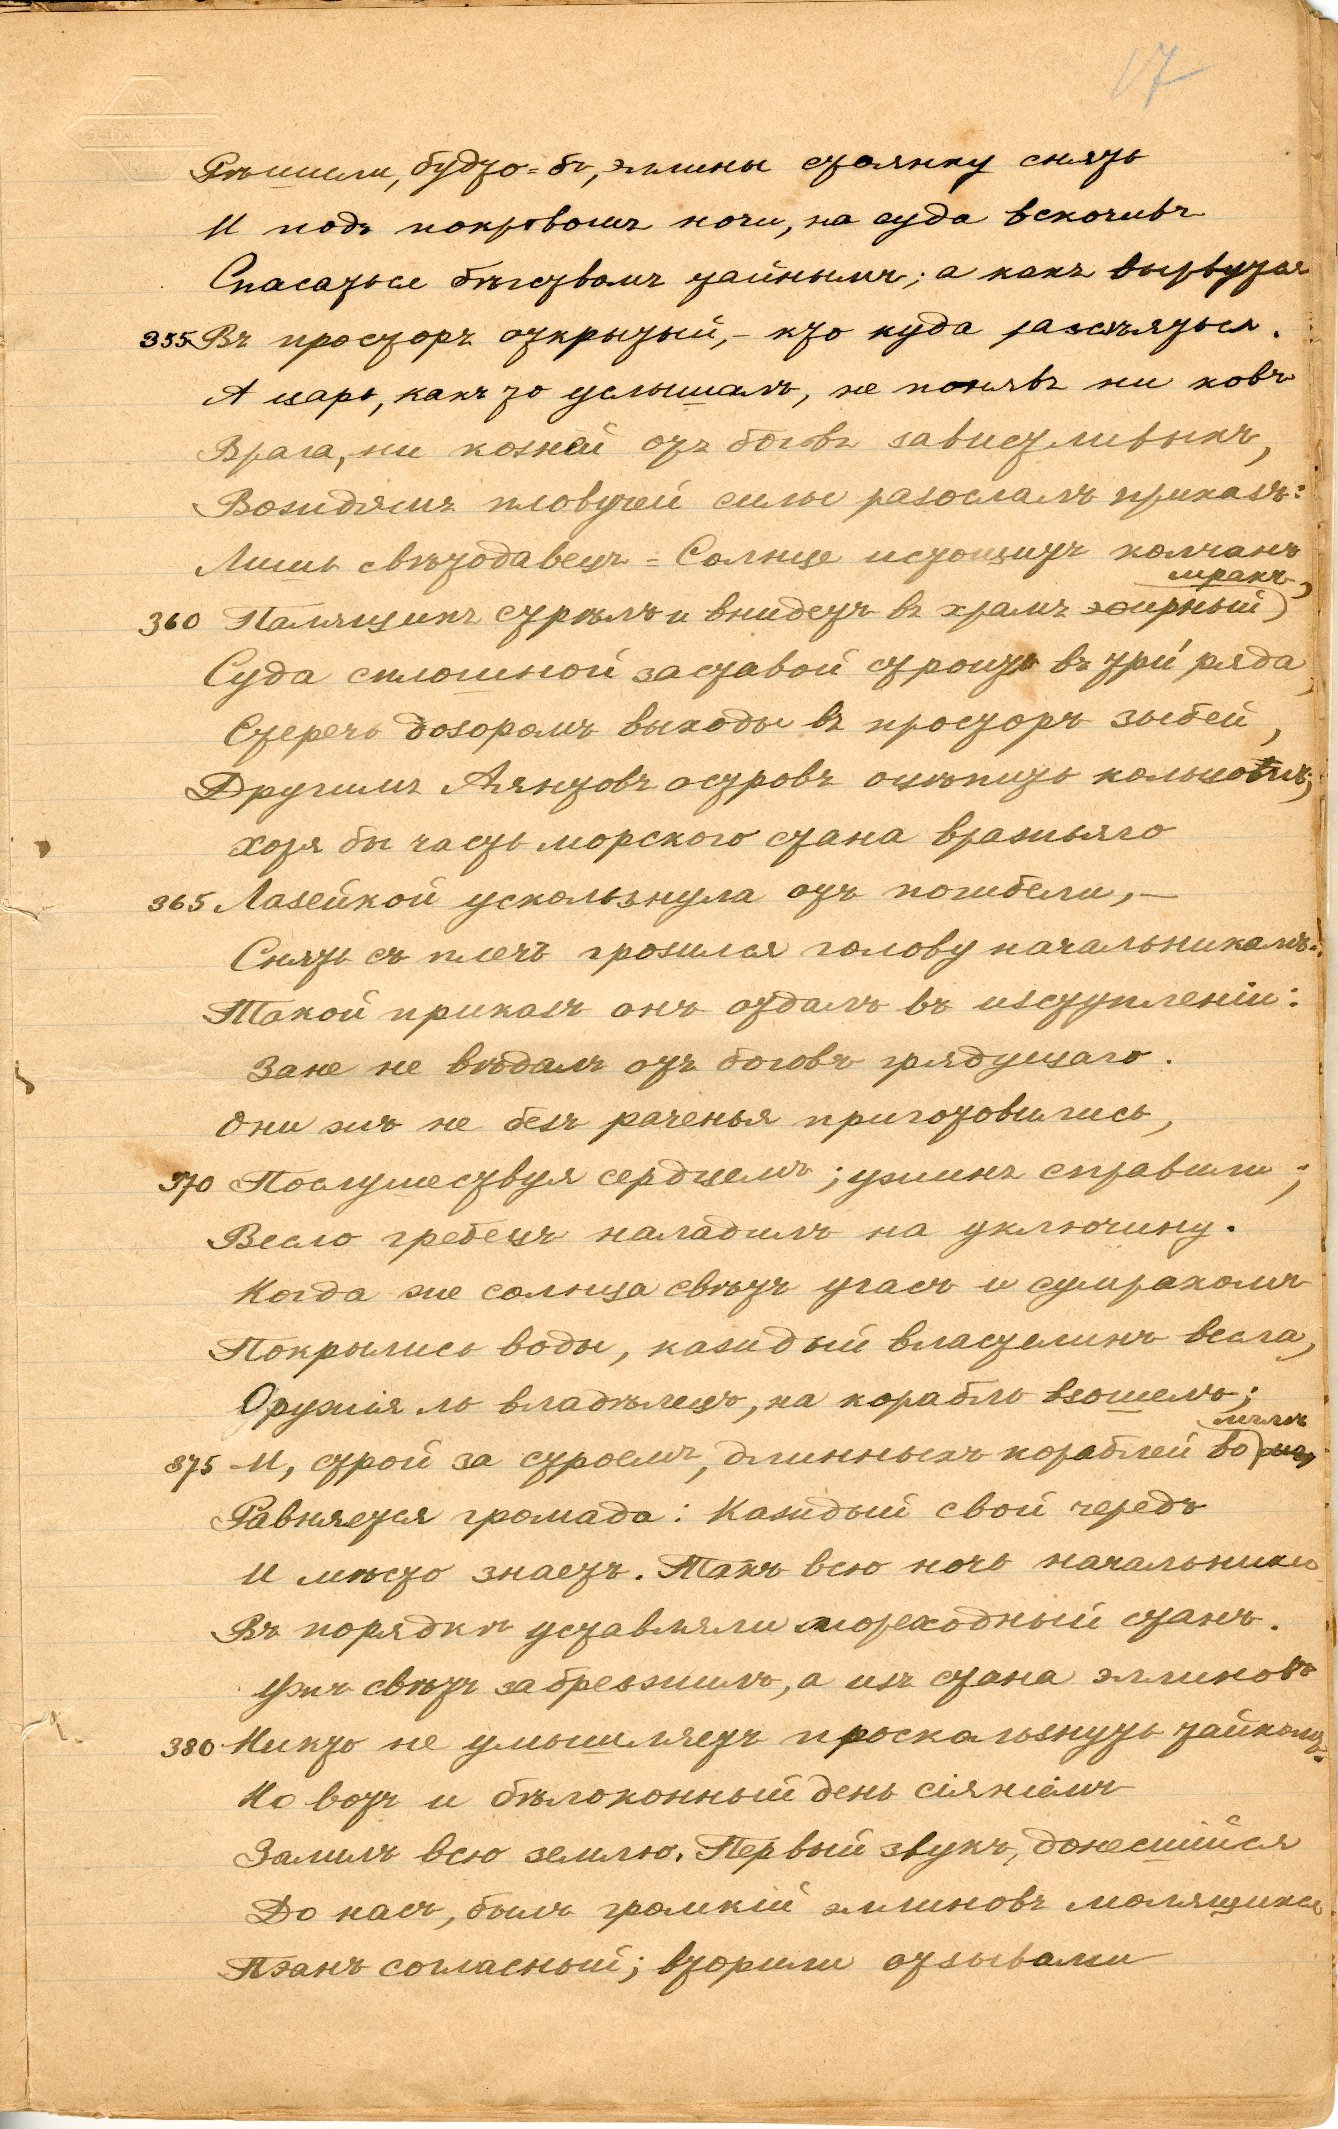 17
Рѣшили, будто-бъ, эллины стоянку снять
И подъ покровомъ ночи, на суда вскочивъ
Спасаться бѣгствомъ тайнымъ; а какъ вырвутся
355 Въ просторъ открытый, – кто куда разсѣяться.
А царь, какъ то услышалъ, не понявъ ни ковъ
Врага, ни козней отъ боговъ завистливыхъ,
Вождямъ пловучей силы разослалъ приказъ:
Лишь свѣтодавецъ-Солнце истощитъ колчанъ
мракъ,
360 Палящихъ стрѣлъ и внидетъ въ храмъ эѳирный
Суда сплошной заставой строить въ три ряда,
Стеречь дозоромъ выходы въ просторъ зыбей,
Другимъ Аянтовъ островъ оцѣпить кольцомъ;
Хотя бы часть морского стана вражьяго
365 Лазейкой ускользнула отъ погибели, –
Снять съ плечъ грозился голову начальникамъ.
Такой приказъ онъ отдалъ въ изступленіи:
Зане не вѣдалъ отъ боговъ грядущаго.
Они жъ не безъ раченья приготовились,
370 Послушествуя сердцемъ; ужинъ справили;
Весло гребецъ наладилъ на уключину.
Когда же солнца свѣтъ угасъ и сумракомъ
Покрылись воды, каждый властелинъ весла,
Оружія ль владѣлецъ, на корабль взошелъ;
мглѣ
375 И, строй за строемъ, длинныхъ кораблей во
Равняется громада: каждый свой чередъ
И мѣсто знаетъ. Такъ всю ночь начальники
Въ порядки уставляли мореходный станъ.
Ужъ свѣтъ забрезжилъ, а изъ стана эллиновъ
380 Никто не умышляетъ проскользнуть тайкомъ.
Но вотъ и бѣлоконный день сіяніемъ
Залилъ всю землю. Первый звукъ, донесшійся
До насъ, былъ громкій эллиновъ молящихся
Пэанъ согласный; вторили отзывами